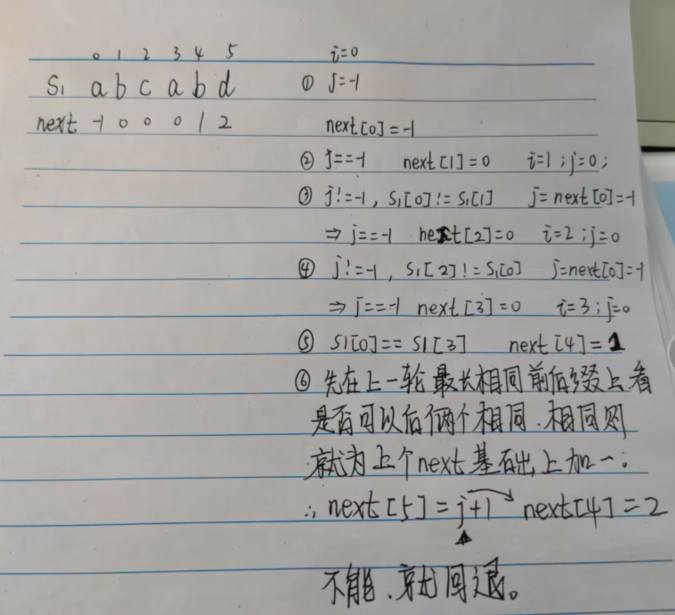 0 1 2 3 4 5
S1 a b c a b d
next -1 0 0 0 1 2
i=0
① j=-1
next[0]=-1
② j==-1 next[1]=0 i=1;j=0;
③ j!=-1, S1[0]!=S1[1] j=next[0]=-1
⇒ j==-1 next[2]=0 i=2;j=0
④ j!=-1, S1[2]!=S1[0] j=next[0]=-1
⇒ j==-1 next[3]=0 i=3;j=0
⑤ S1[0]==S1[3] next[4]=1
⑥ 先在上一轮最长相同前后缀上看
是否可以后俩个相同.相同则
就为上个next基础上加一;
∴ next[5]=j+1 next[4]=2
不能、就回退。